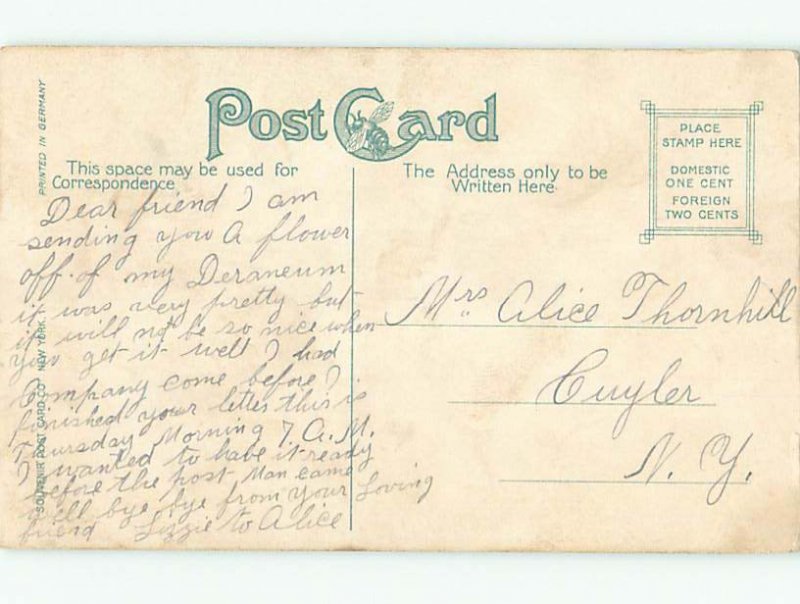 PRINTED IN GERMANY
Post Card
This space may be used for
Correspondence
The Address only to be
Written Here
PLACE
STAMP HERE
DOMESTIC
ONE CENT
FOREIGN
TWO CENTS
Dear friend I am
sending you A flower
off of my Deraneum
it was very pretty but
it will not be so nice when
you get it well I had
Company come before I
finished your letter this is
Thursday Morning 7. A. M.
I wanted to habe it ready
before the post Man came
well bye bye from your Loving
friend Lizzie to Alice
SOUVENIR POST CARD CO. NEW YORK
Mrs Alice Thornhill
Cuyler
N. Y.